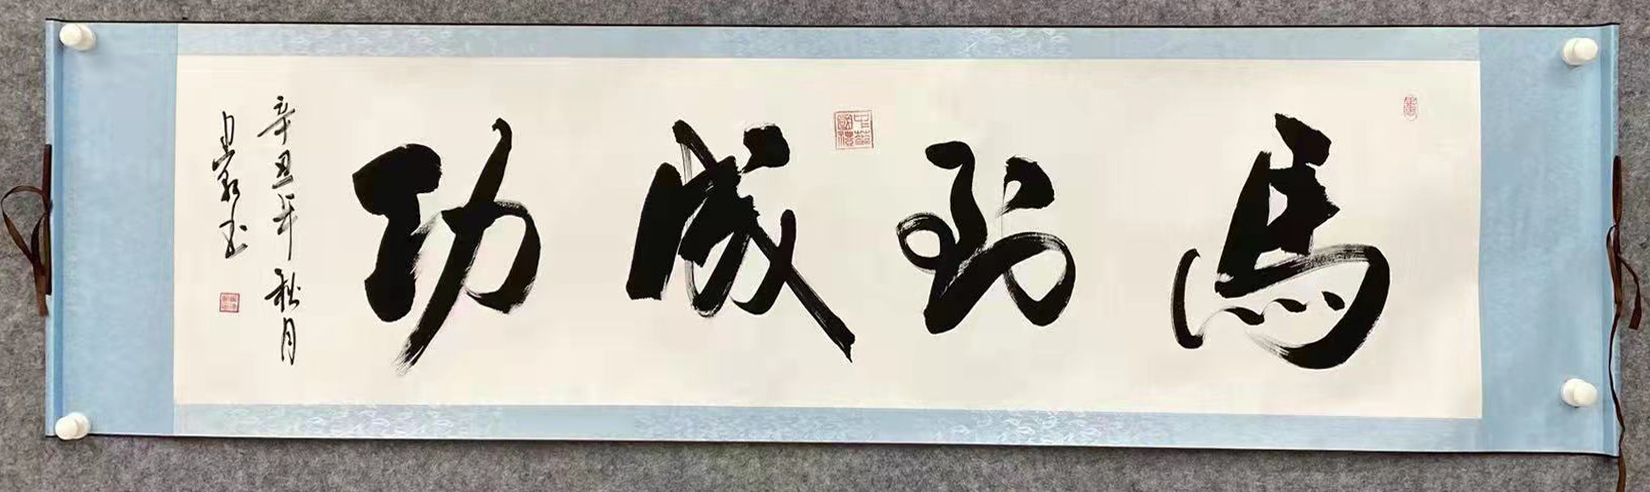 馬到成功
辛丑年秋月